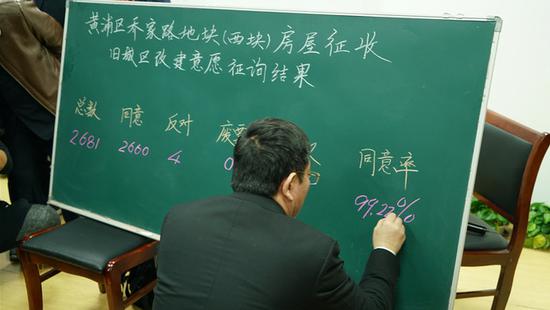 黄浦区乔家路地块(西块)房屋征收
旧城区改建意愿征询结果
总数 同意 反对 废票 同意率
2681 2660 4 0 99.22%